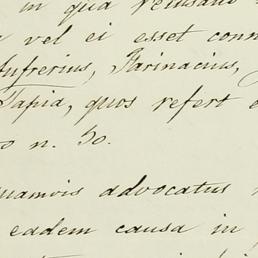 in qua recusatio
vel ei esset conn
Aufrerius, Farinacius,
Tapia, quos refert
n. 50.
quamvis advocatus
eadem causa in